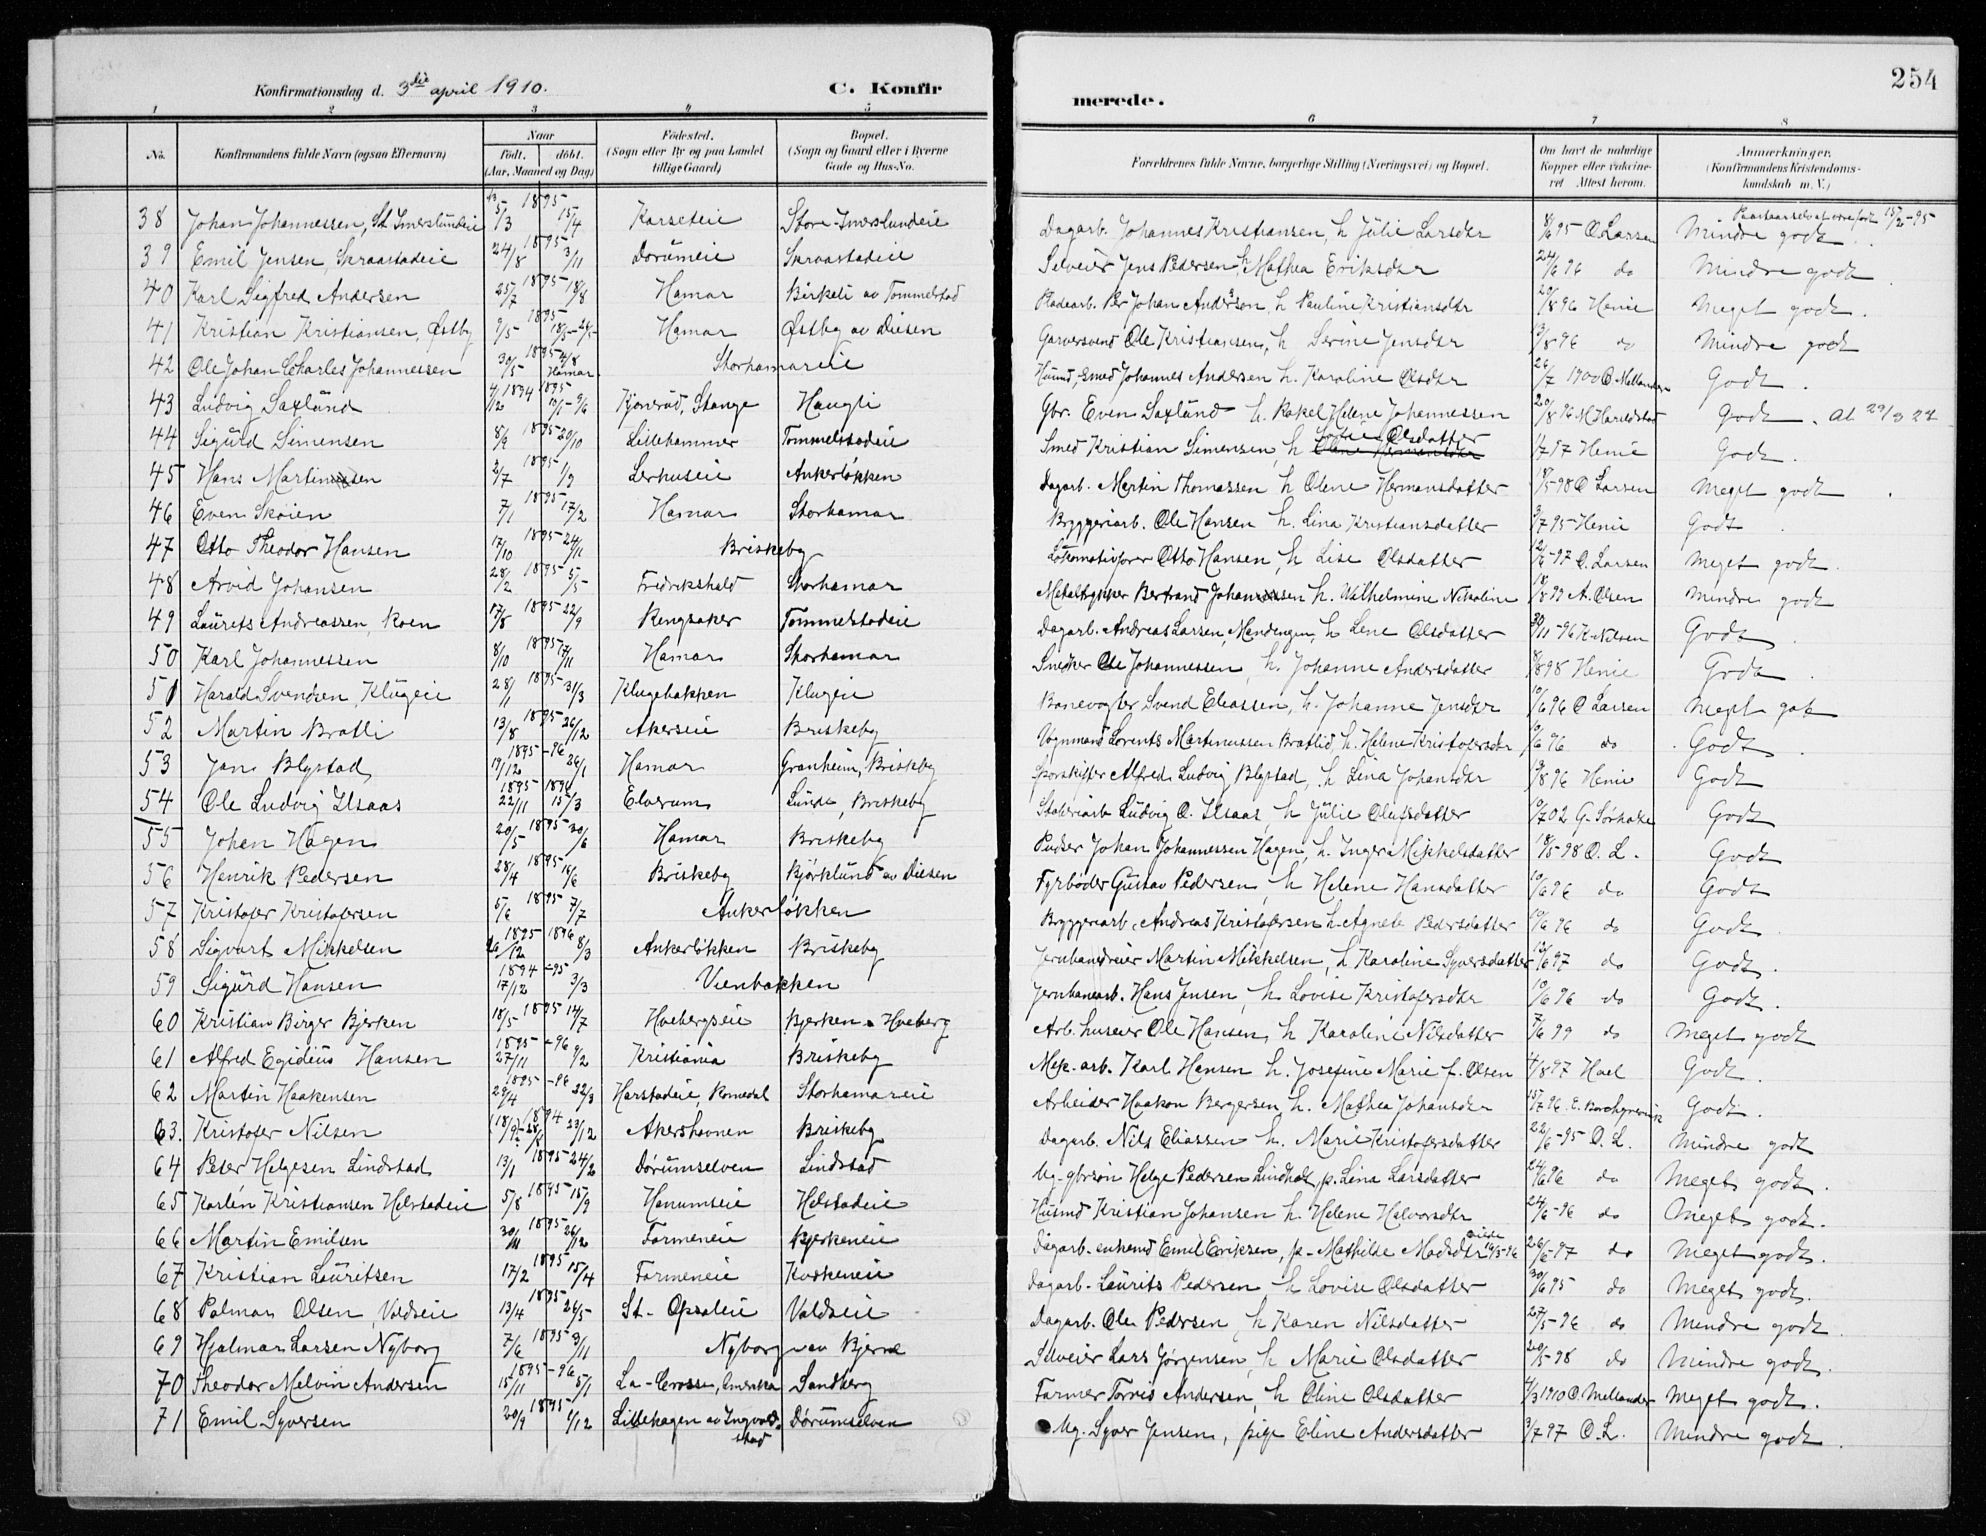 254
Konfirmationsdag d. 3die april 1910.
C. Konfirmerede.
1 2 3 4 5 6 7 8
No. Konfirmandens fulde Navn (ogsaa Efternavn) Naar født. døbt. (Aar, Maaned og Dag) Fødested. (Sogn eller By og paa Landet tillige Gaard) Bopæl. (Sogn og Gaard eller i Byerne Gade og Hus-No. Forældrenes fulde Navne, borgerlige Stilling (Næringsvei) og Bopæl. Om havt de naturlige Kopper eller vakcineret Attest herom. Anmærkninger. (Konfirmandens Kristendomskundskab m. V.)
38 Johan Johannessen, St. Imerslundeie 1895 15/4 Karseteie Store-Imerslundeie Dagarb. Johannes Kristiansen, h Julie Larsdtr 8/6 95 O. Larsen Mindre godt 15/2-95
39 Emil Jensen, Skraastadeie 24/8 1895 3/11 Dørumeie Skraastadeie Selveier Jens Pedersen, h Mathea Eriksdtr 24/6 96 do Mindre godt
40 Karl Sigfred Andersen 25/7 1895 18/8 Hamar Birkeli av Tommelstad Johan Anderson, h Pauline Kristiansdtr 20/8 96 Henie Meget godt.
41 Kristian Kristiansen, Østby 9/5 1895 Hamar Østby av Disen Garversvend Ole Kristiansen, h Serine Jensdtr 13/8 96 do Mindre godt
42 Ole Johan Charles Johannessen 30/5 1895 4/8 Hamar Storhamareie Husmd, Smed Johannes Andersen h. Karoline Olsdtr 26/7 1900 O. Mellander Godt.
43 Ludvig Saxlund 4/12 1894 1895 Kjonerud, Stange Haugli Gbr. Even Saxlund h. Rakel Helene Johannessen 20/8 96 M. Haraldstad Godt. At 29/3 22
44 Sigurd Simensen 8/9 1895 20/10 Lillehammer Tommelstadeie Smed Kristian Simensen, h Olsdatter 97 Henie Godt.
45 Hans Martinsen 2/7 1895 1/9 Lerhuseie Ankerløkken Dagarb. Martin Thomassen h Olene Hermansdatter 18/5-98 O Larsen Meget godt.
46 Even Skøien 7/1 1895 17/2 Hamar Storhamar Bryggeriarb. Ole Hansen h. Lina Kristiansdatter 3/7 95 Henie Godt
47 Otto Theodor Hansen 17/10 1895 24/11 Briskeby Lokomotivfører Otto Hansen, h Lise Olsdatter 12/6-97 O. Larsen Meget godt.
48 Arvid Johansen 28/2 1895 5/5 Fredrikshald Storhamar Metaltrykker Bertrand Johansen h. Wilhelmine Nikoline 18/8 99 A. Olsen Mindre godt
49 Laurits Andreassen, Roen 17/8 1895 22/9 Ringsaker Tommelstadeie Dagarb. Andreas Larsen, Mendengen, h Lene Olsdatter 30/11-96 K. Nilsen Godt.
50 Karl Johannessen 8/10 1895 17/11 Hamar Storhamar Snedker Ole Johannessen, h. Johanne Andersdatter 8/8 98 Henie Godt.
51 Harald Svendsen, Klugeie 28/1 1895 31/3 Klugebakken Klugeie Banevogter Svend Eliassen, h. Johanne Jensdtr 10/6 96 O Larsen Meget godt
52 Martin Bratli 13/8 1895 26/12 Akerseie Briskeby Vognmand Lorents Martinussen Bratlid, h. Helene Kristofersdtr 10/6 96 do Godt.
53 Jens Blystad 19/12 1895-96 26/1 Hamar Granheim, Briskeby Sporskifter Alfred Ludvig Blystad, h Lina Johansdtr 13/8 96 Henie Godt
54 Ole Ludvig Ilsaas 22/11 1895 1896 15/3 Elverum Lunde, Briskeby Ludvig O. Ilsaas, h Julie Olufsdatter 10/7 02 G. Sørhatke Godt
55 Johan Hagen 20/5 1895 30/6 Hamar Briskeby Pudser Johan Johannessen Hagen, h. Inger Mikkelsdatter 18/5-98 O. L. Godt
56 Henrik Pedersen 28/4 1895 16/6 Briskeby Bjørklund av Disen Fyrbøder Gustav Pedersen, h Helene Hansdatter 10/6 96 do Godt
57 Kristofer Kristofersen 5/6 1895 7/7 Ankerløkken Bryggeriarb. Andreas Kristofersen h. Agnete Pedersdatter 10/6 96 do Godt.
58 Sigvart Mikkelsen 26/12 1895 1896 8/3 Ankerløkken Briskeby Martin Mikkelsen, h Karoline Syversdatter 12/6 97 do Godt.
59 Sigurd Hansen 17/12 1894-95 3/3 Vienbakken Jernbanearb. Hans Jensen, h. Lovise Kristofersdtr 10/6 96 do Godt.
60 Kristian Birger Bjerken 18/5 1895 14/7 Hobergseie Bjerken a Hoberg Arb. huseier Ole Hansen, h Karoline Nilsdatter 7/6 99 do Meget godt
61 Alfred Egidius Hansen 27/11 1895-96 9/2 Kristiania Briskeby Mek. arb. Karl Hansen h. Josefine Marie f. Olsen 4/8 97 Hoel Godt.
62 Martin Haakensen 29/4 1895-96 22/3 Harstadeie, Romedal Storhamareie Arbeider Haakon Bergersen, h. Mathea Johansdtr 15/7 96. C. Borchgrevink Godt.
63. Kristofer Nilsen 1894 23/12 Akershavnen Briskeby Dagarb. Nils Eliassen h. Marie Kristofersdatter 22/6-95 O. L. Mindre godt
64 Peter Helgesen Lindstad 13/1 1895 24/2 Dørumselven Lindstad Ug. gbrsøn Helge Pedersen Lindholt, p. Lina Larsdatter 24/6 96 do Meget godt.
65 Karlén Kristiansen Helstadeie 5/8 1895 15/9 Hanumseie Helstadeie Husmd Kristian Johansen h. Helene Halvorsdtr 24/6-96 do Meget godt.
66 Martin Emilsen 30/11 1895 26/12 Farmeneie Bjerkeneie Dagarb. enkemd Emil Eriksen, p- Mathilde Madsdtr 26/6-97 do Meget godt.
67 Kristian Lauritsen 17/2 1895 15/4 Farmeneie Kurkeneie Dagarb. Laurits Pedersen, h Lovise Olsdatter 30/6 95 do Meget godt.
68 Palmar Olsen, Valdseie 13/4 1895 26/5 St- Opsaleie Valdseie Dagarb. Ole Pedersen, h Karen Nilsdatter 27/5-96 do Mindre godt.
69 Hjalmar Larsen Nyborg 7/6 1895 3/11 Nyborg av Bjerke Selveier Lars Jørgensen, h Marie Olsdatter 20/5-98 do Mindre godt.
70 Theodor Melvin Andersen 15/11 1895-96 5/1 La-Crosse, Amerika Sandberg Farmer Torris Andersen, h Oline Olsdatter 4/3 1910 O. Mellander Meget godt.
71 Emil Syversen 20/9 1895 1/12 Lillehagen av Ingvoldstad Dørumselven Ug. Syver Jensen, pige Eline Andersdatter 3/7 97 O. L. Mindre godt.